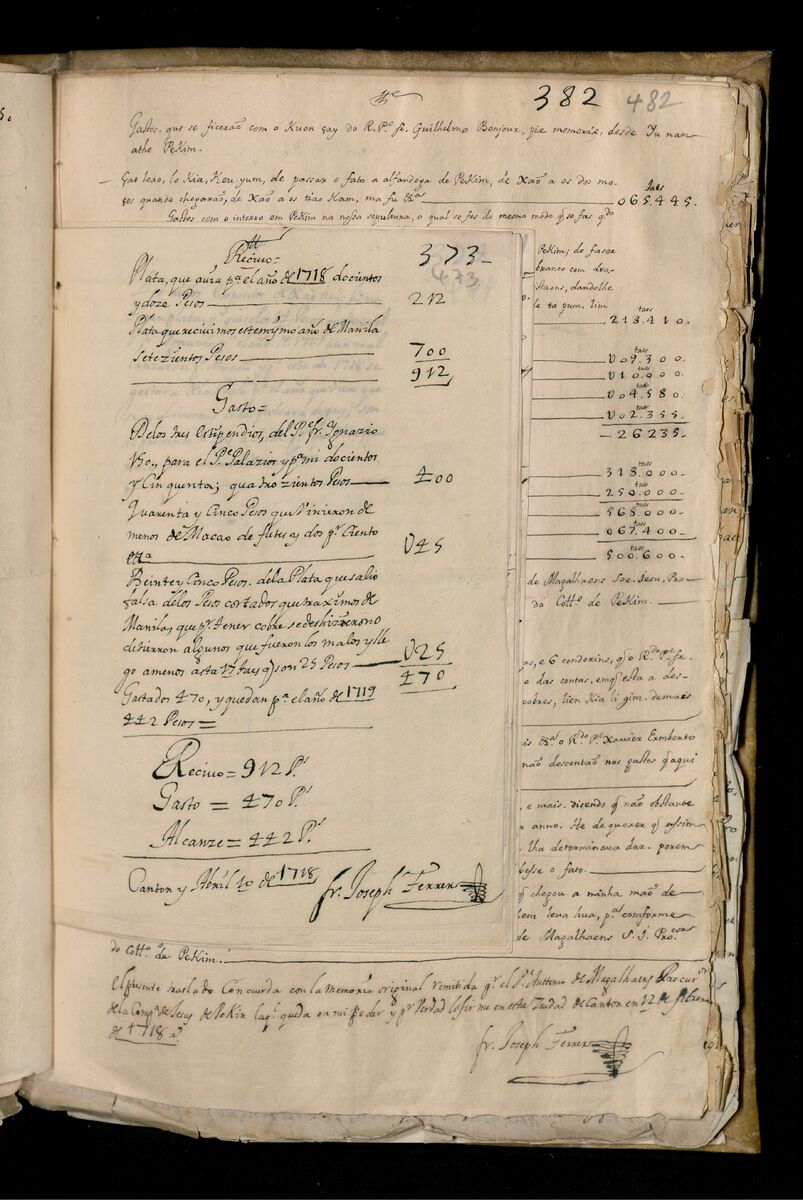 382 482
Gastos, que se ficerão com o Kuon çay do R. Pe. fr. Guilhelmo Bonjour, pie memorie, desde Yu nan
athe PeKim.
lo Kia, Keu yum, de passar o fato a alfandega de PeKim, de Xaõ a os dos mo-
ços quando chegarão, de Xaõ a os tiao Kam, ma fu &a
taes
065.445.
Gastos com o interro em PeKim na nossa sepultura, o qual se fes do mesmo modo q se fas qdo
373
473
Recivo=
Plata, que avia pa. el año de 1718 docientos
y doze Pesos 212
Plata que recivimos este mymo año de Manila
sete zientos Pesos 700
912
Gasto=
De los tres Estipendios, del Pe. fr. Ignazio
para el Pe. Palazios y pa. mi docientos
y Cinquenta; quatro zientos Pesos 400
Quarenta y Cinco Pesos que vinieron de
menos de Macao de fletes y dos pr. Ciento
V45
Beinte y Cinco Pesos de la Plata que salio
falsa de los Pesos cortados que traximos de
Manila, que pr. tener cobre se deshizieron o
algunos que fueron los malos y lle
go a menos asta 17 taes q son 25 Pesos V25
470
Gastados 470, y quedan pa. el año de 1719
442 Pesos=
Recivo = 912 Ps.
Gasto = 470 Ps.
Alcanze = 442 Ps.
Canton y Abril 10 de 1718
fr. Joseph Ferrer
PeKim; de faser
branco com
dandolhe
le ta pum, lim
taes
213.410.
taes
V09.300.
taes
V10.000.
taes
V04.580.
taes
V02.355.
26235.
taes
318.000.
taes
250.000.
568.000.
067.400.
taes
500.600.
de Magalhaens Soc. Jesu, Pro-
do Collo. de PeKim.
e 6 condorins, qo o Rdo. Pe. fr.
o das contas, em q esta a des-
pobres, lien Kia li gim. demais
&a. o Rdo. Pe. Xavier Ermberto
não descontão nos gastos q aqui
e mais. disendo q não obstante
r anno. He de querer q assim
lha determinava dar. porem
besse o fato.
q chegou a minha mão de
bem leva hua, pa. comforme
de Magalhaens S. J. Procor
do Collo. de PeKim.
El presente traslado Concuerda con la memoria original remitida pr. el Pe. Anttonio de Magalhaens Procur
de la Compa. de Jesus de PeKin la ql. queda en mi poder y pr. verdad lo firme en esta Ziudad de Canton en 12 de febrero
de 1718 a.
fr. Joseph Ferrer